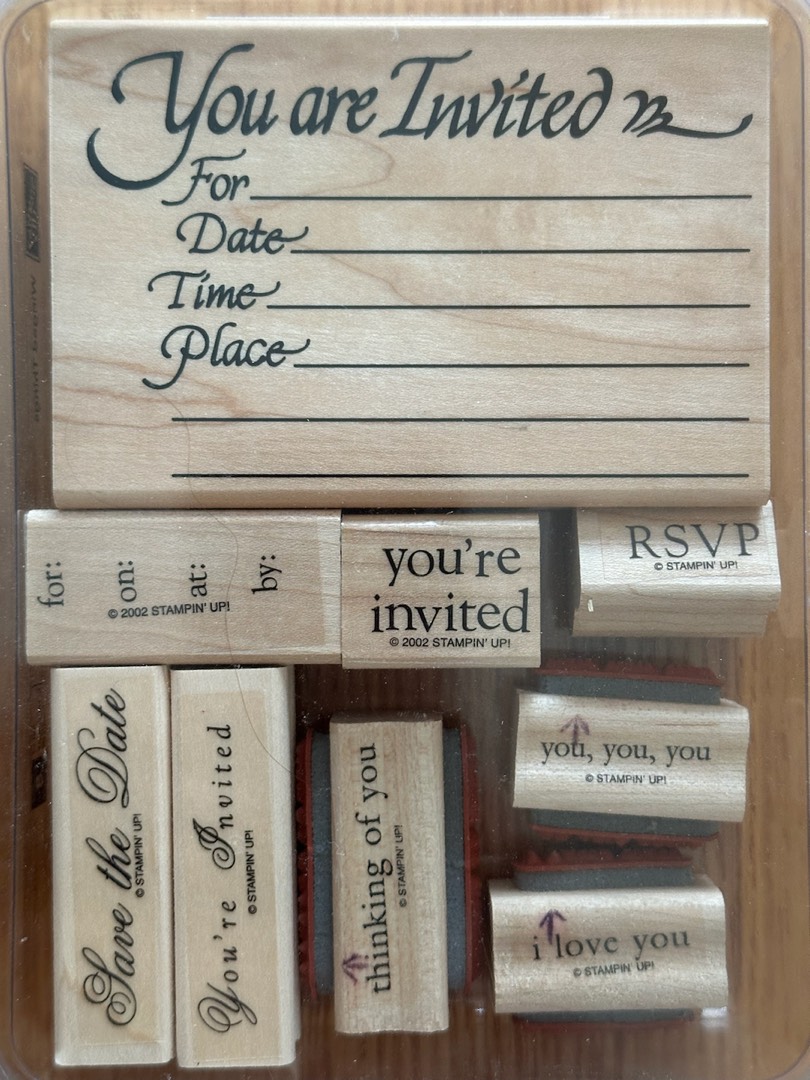 You are Invited
For
Date
Time
Place
for:
on:
at:
by:
© 2002 STAMPIN' UP!
you're
invited
© 2002 STAMPIN' UP!
RSVP
© STAMPIN' UP!
Save the Date
© STAMPIN' UP!
You're Invited
© STAMPIN' UP!
thinking of you
© STAMPIN' UP!
you, you, you
© STAMPIN' UP!
i love you
© STAMPIN' UP!